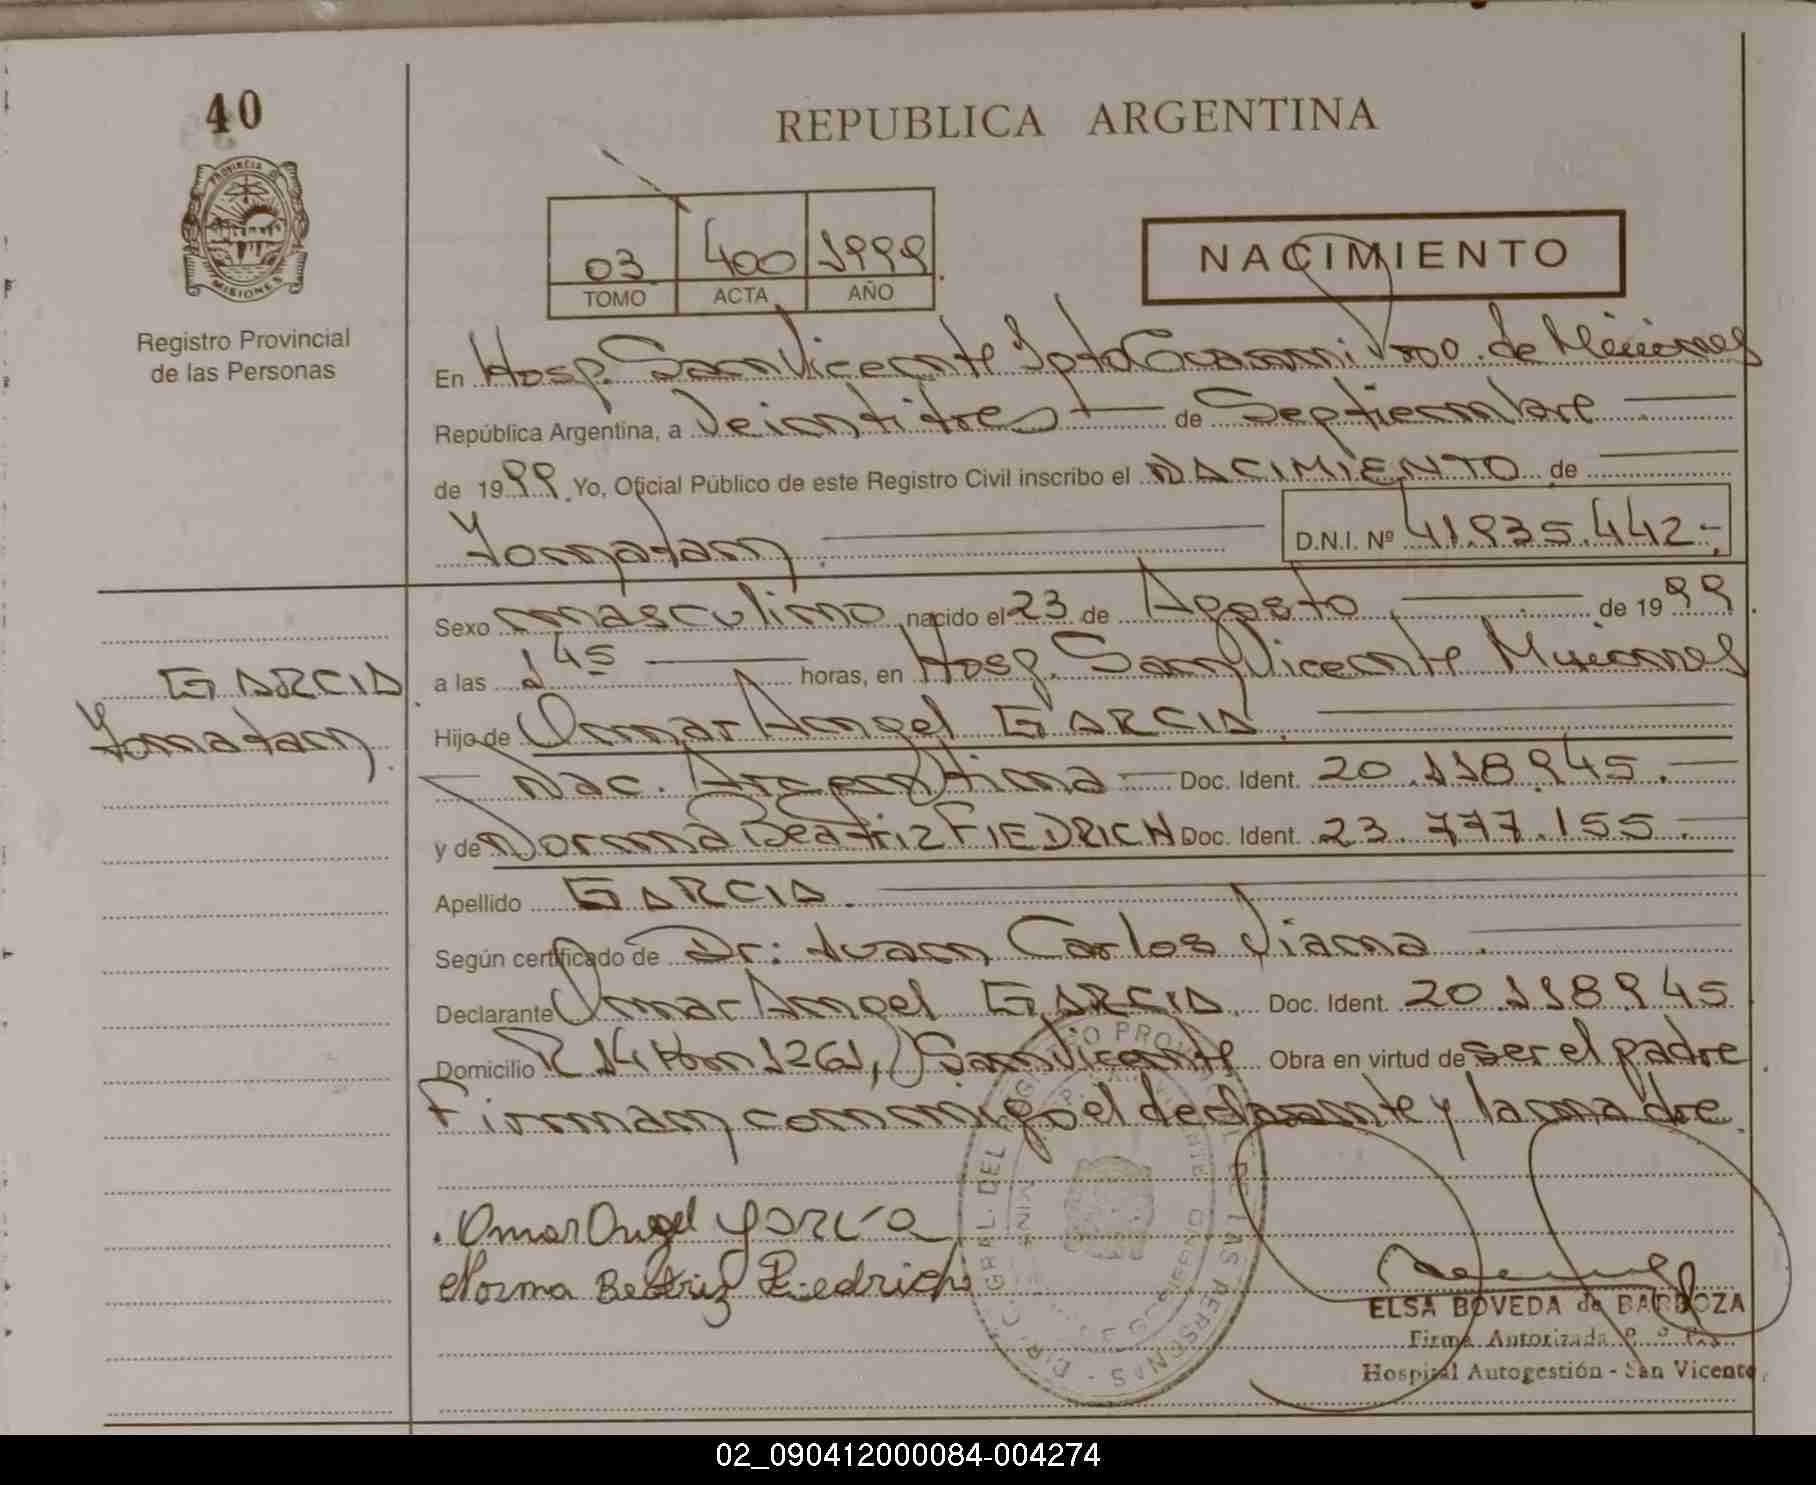 40
REPUBLICA ARGENTINA
PROVINCIA DE
MISIONES
Registro Provincial
de las Personas
03 400 1999
TOMO ACTA AÑO
NACIMIENTO
En Hosp. San Vicente Dpto Guaraní Prov. de Misiones
República Argentina, a Veintitres de Septiembre
de 1999. Yo, Oficial Público de este Registro Civil inscribo el NACIMIENTO de
Yonatan D.N.I. Nº 41.935.442.-
Sexo masculino nacido el 23 de Agosto de 1999.
GARCIA
Yonatan.
a las 1 45 horas, en Hosp. San Vicente Misiones
Hijo de Omar Angel GARCIA.
Nac. Argentina Doc. Ident. 20.118.945.
y de Norma Beatriz FIEDRICH Doc. Ident. 23.777.155.
Apellido GARCIA.
Según certificado de Dr: Juan Carlos Viana
Declarante Omar Angel GARCIA. Doc. Ident. 20.118.945
Domicilio R 14 Km 1261, San Vicente Obra en virtud de ser el padre
Firman conmigo el declarante y la madre.
Omar Angel García
Norma Beatriz Fiedrich
ELSA BOVEDA de BARBOZA
Firma Autorizada
Hospital Autogestión - San Vicente
02_090412000084-004274